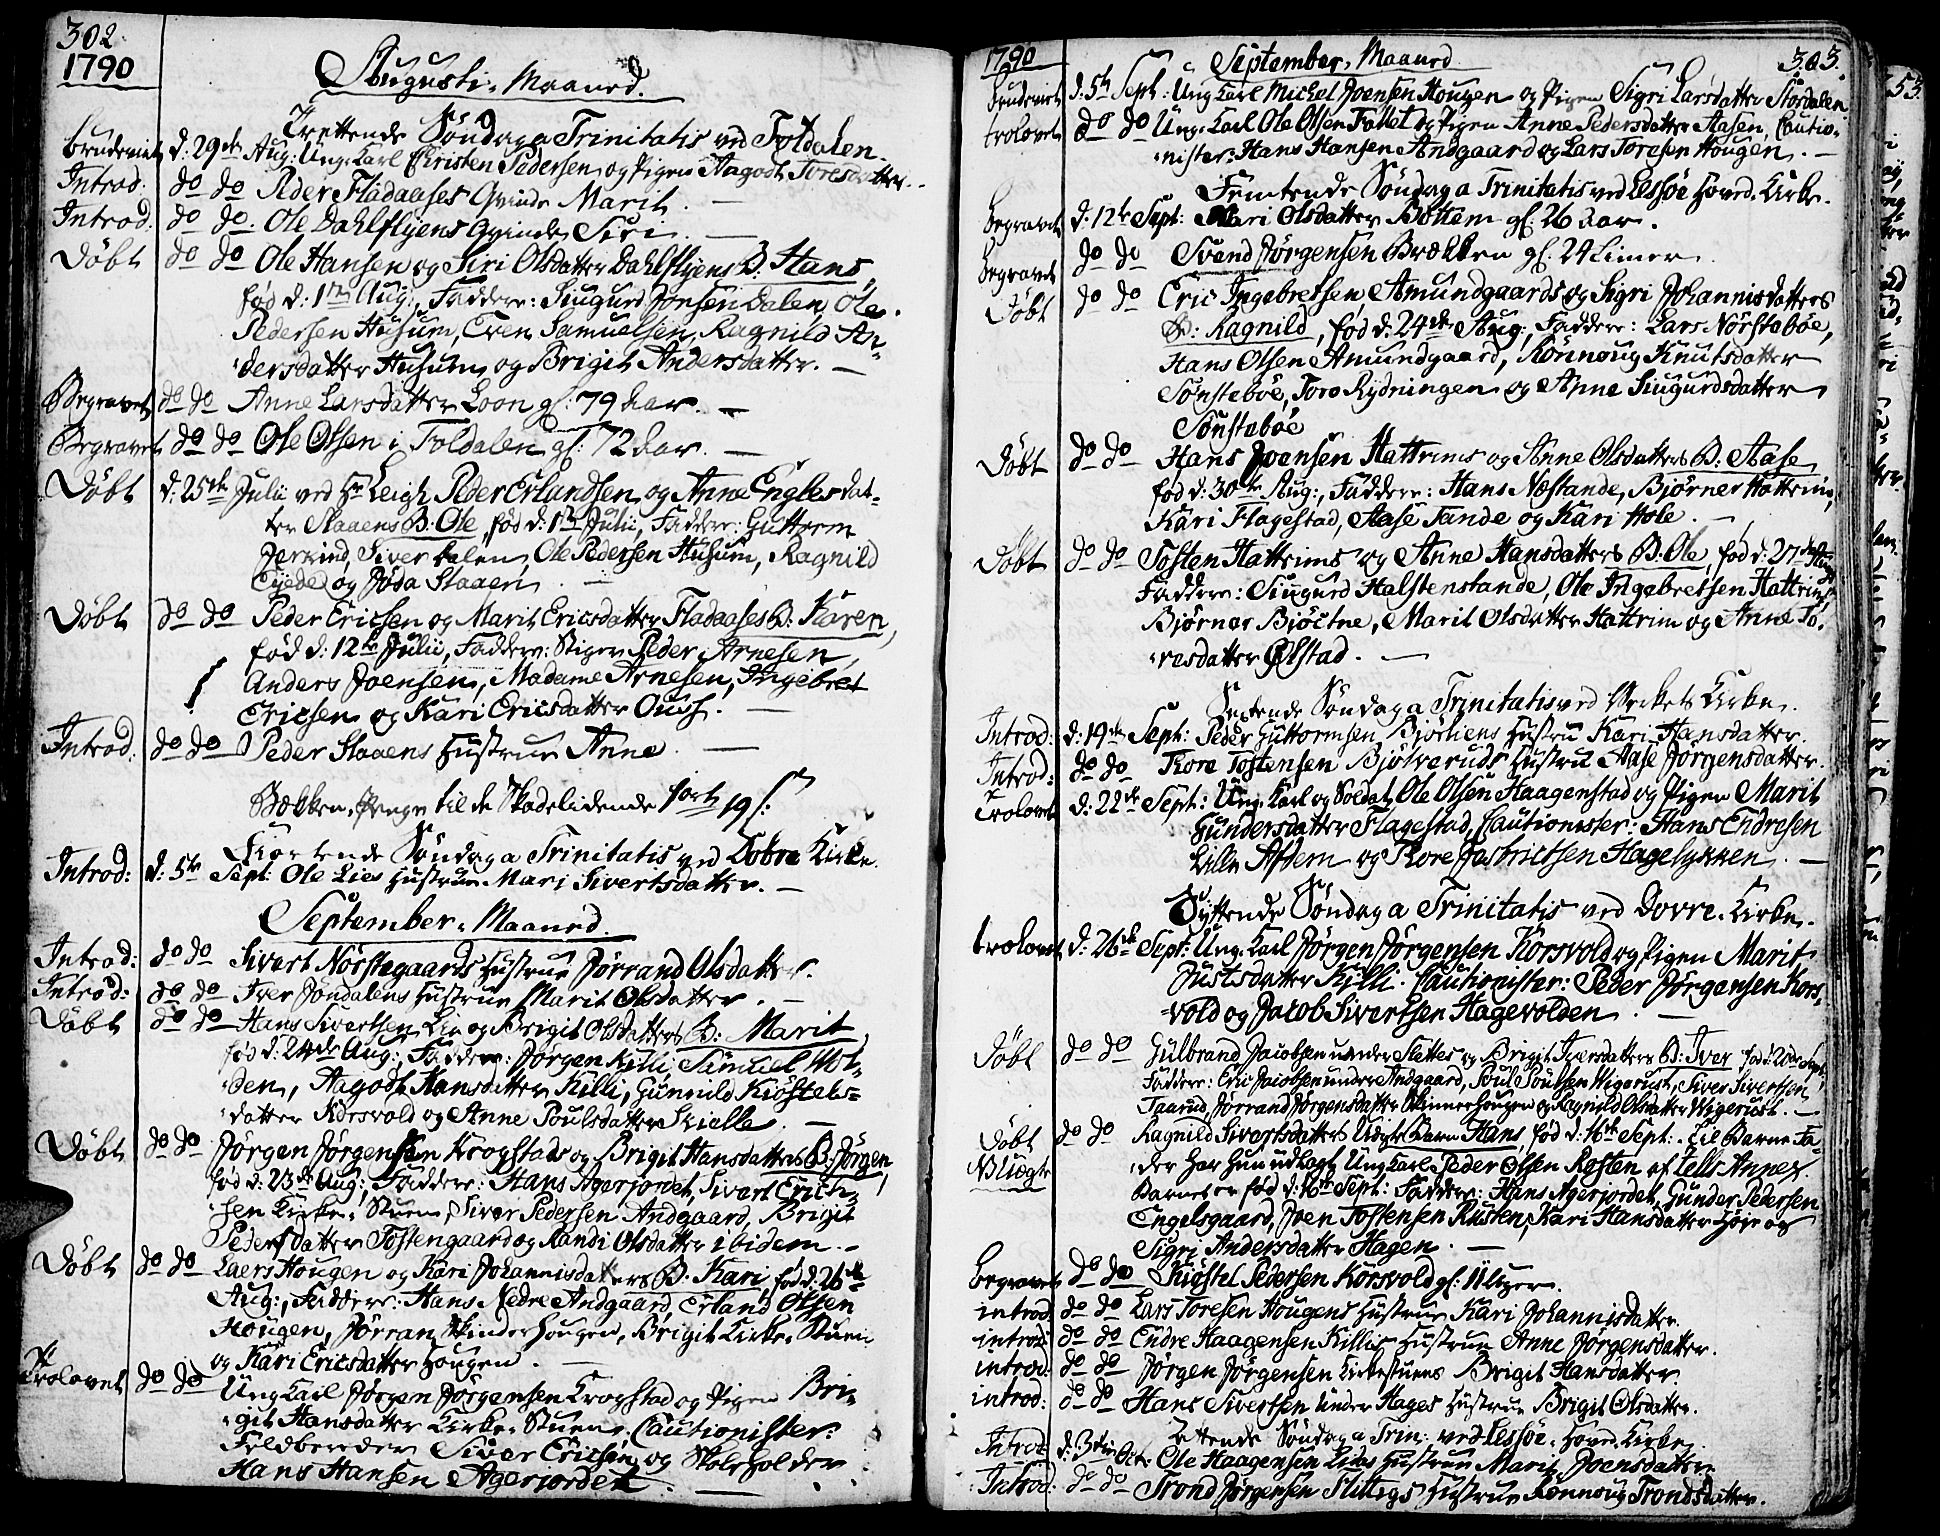 302.
1790
Augusti-Maaned.
Trettende Søndag a Trinitatis ved Foldalen.
brudeviet d: 29de Aug: Ung-Karl Christen Pedersen og Pigen Aagodt Toresdatter.
Introd: do do Peder Fladaases Qvinde Marit. —
Introd: do do. Ole Dahlflyens Qvinde Siri. —
Døbt do do Ole Hansen og Siri Olsdatter Dahlflyens B: Hans,
fød d: 1ste Aug:, Faddere: Siugurd Jonsen Dalen, Ole
Pedersen Husum, Even Samuelsen, Ragnild An-
dersdatter Husum og Brigit Andersdatter. —
Begravet do do Anne Larsdatter Loon gl: 79 Aar. —
Begravet do do Ole Olsen i Foldalen gl: 72 Aar. —
Døbt d: 25de Julii ved Hr Leigh Peder Erlandsen og Anne Englesdat-
ter Slaaens B: Ole, fød d: 13 Julii, Faddere: Guttorm
Jerkind, Siver Dalen, Ole Pedersen Husum, Ragnild
og Jøda Slaaen. —
Døbt do do Peder Ericsen og Marit Ericsdatter Fladaases B: Karen,
fød d: 12te Julii, Faddere: Stiger Peder Arnesen,
Anders Joensen, Madame Arnesen, Ingebret
Ericsen og Kari Ericsdatter —
Introd. do do Peder Slaaens Hustrue Anne. —
Bækken-Penge til de Skadelidende 19 s:
Fiortende Søndag a Trinitatis ved Dovre Kirke.
Introd: d: 5te Sept: Ole Lies Hustrue Mari Sivertsdatter. —
September-Maaned.
Introd: do do Sivert Nørstegaards Hustrue Jørrand Olsdatter.
Introd: do do Iver Jøndalens Hustrue Marit Olsdatter. —
Døbt do do Hans Sivertsen Lie og Brigit Olsdatters B: Marit
fød d: 24de Aug:, Faddere: Jørgen Killi, Samuel Hol-
den, Aagodt Hansdatter Killi, Gunnild Kiøstels-
datter Korsvold og Anne Poulsdatter Lielle. —
Døbt do do Jørgen Jørgensen Krogstad og Brigit Hansdatters B: Jørgen,
fød d: 23de Aug:, Faddere: Hans Agerjordet, Sivert Eric-
sen Kirke-Stuen, Siver Pedersen Andgaard, Brigit
Pedersdatter Tostengaard og Randi Olsdatter ibidem. —
Døbt do do Laers Hougen og Kari Johannisdatters B: Kari, fød d: 26de
Aug:, Faddere: Hans Nedre Andgaard, Erland Olsen
Hougen, Jørran Skinderhougen, Brigit Kirke-Stuen
og Kari Ericsdatter Hougen. —
Trolovet do do Ung Karl Jørgen Jørgensen Krogstad og Pigen Bri-
git Hansdatter Kirke-Stuen. Cautionister:
Feldbereder Siver Ericsen og Skoleholder
Hans Hansen Agerjordet. —
1790 September-Maaned 303.
brudeviet d: 5te Sept: Ung Karl Michel Joensen Hougen og Pigen Sigri Larsdatter Stordalen.
trolovet do do Ung-Karl Ole Olsen Tallet og Pigen Anne Pedersdatter Aasen, Cautio-
nister: Hans Hansen Andgaard og Lars Toresen Hougen. —
Femtende Søndag a Trinitatis ved Lessøe Hoved-Kirke.
Begravet d: 12te Sept: Mari Olsdatter Bottem gl: 26 Aar.
Begravet do do Svend Jørgensen Brækken gl: 24 Timer.
Døbt do do Eric Ingebretsen Amundgaards og Sigri Johannisdatters
B: Ragnild, fød d: 24de Aug:, Faddere: Lars Nørstebøe,
Hans Olsen Amundgaard, Rønnoug Knutsdatter
Sønstebøe, Tore Rydningen og Anne Siugurdsdatter
Sønstebøe
Døbt do do Hans Joensen Hattrims og Anne Olsdatters B: Aase
fød d: 30te Aug:, Faddere: Hans Nestande, Bjørner Hattrim,
Kari Flagestad, Aase Tande og Kari Hole. —
Døbt do do Tosten Hattrims og Anne Hansdatters B: Ole, fød d: 27de Aug:
Faddere: Siugurd Halstenstande, Ole Ingebretsen Hattrim,
Bjørner Bjøctne, Marit Olsdatter Hattrim og Anne To-
resdatter Ølstad. —
Sextende Søndag a Trinitatis ved Verkets Kirke.
Introd: d: 19de Sept: Peder Guttormsen Bjørliens Hustru Kari Hansdatter.
Introd: do do Tore Tostensen Bjølveruds Hustru Aase Jørgensdatter.
Trolovet d: 22de Sept: Ung Karl og Soldat Ole Olsen Haagenstad og Pigen Marit
Gundersdatter Flagestad, Cautionister: Hans Endresen
Lille Aftem og Tore Hagelykken. —
Syttende Søndag a Trinitatis ved Dovre-Kirke.
trolovet d: 26de Sept: Ung Karl Jørgen Jørgensen Korsvold og Pigen Marit
Justsdatter Killi. Cautionister: Peder Jørgensen Kors-
vold og Jacob Sivertsen Hagevolden. —
Døbt do do Gulbrand Jacobsen under Slettes og Brigit Iversdatters B: Iver fød d: 20de Sept:
Faddere: Eric Jacobsen under Andgaard, Poul Poulsen Wigerust, Siver Sivertsen
Taarud, Jørrand Jørgensdatter Skinnerhougen og Ragnild Olsdatter Wigerust. —
Døbt do do Ragnild Sivertsdatters Uægte Barn Hans, fød d: 16de Sept: Til Barne-Fa-
NB Uægte der har hun udlagt Ung Karl Peder Olsen Rosten af Lells Annex.
Barnet er fød d: 16de Sept: Faddere: Hans Agerjordet, Gunder Pedersen
Engelsgaard, Joen Tostensen Rusten, Kari Hansdatter Høje og
Sigri Andersdatter Hagen. —
begravet do do Kiøstel Pedersen Korsvold gl: 11 Uger.
introd do do Lars Toresen Hougens Hustrue Kari Johannisdatter.
introd: do do Endre Haagensen Killis Hustrue Anne Jørgensdatter.
introd: do do Jørgen Jørgensen Kirkestuens Brigit Hansdatter.
introd: do do Hans Sivertsen under Hages Hustrue Brigit Olsdatter.
Attende Søndag a Trin: ved Lessøe-Hoved-Kirke.
Introd: d: 3die Octr Ole Haagensen Lides Hustrue Marit Joensdatter.
Introd: do do Trond Jørgensen Slettes Hustrue Rønnoug Trondsdatter.